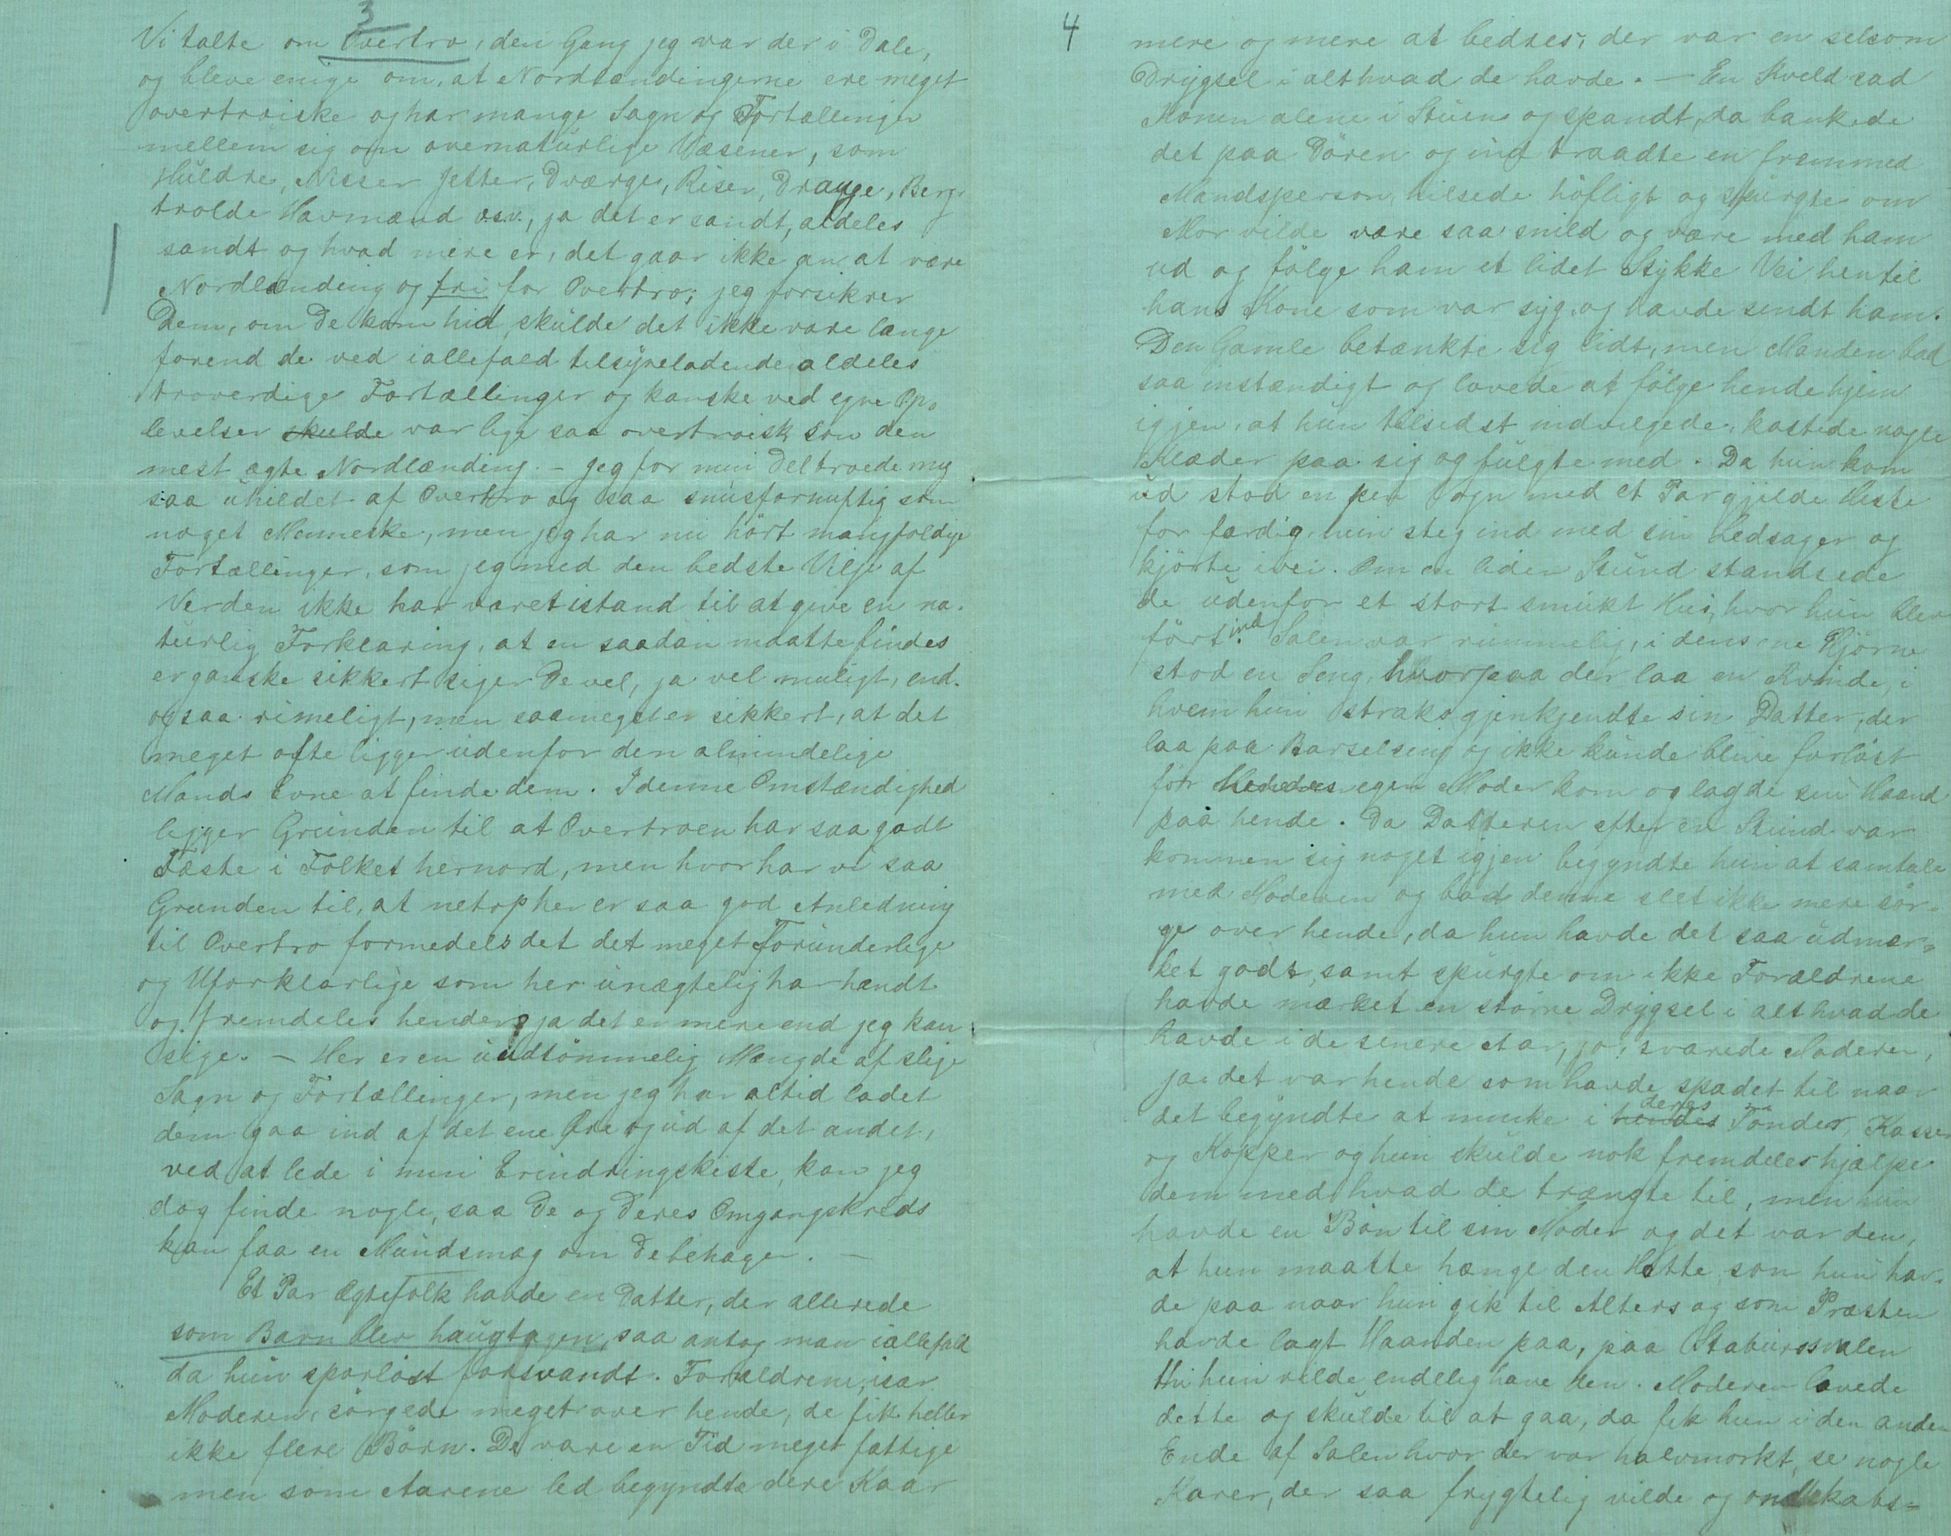 3
Vi talte om Overtro, den Gang jeg var der i Dale,
og bleve enige om, at Nordlændingerne ere meget
overtroiske og har mange Sagn og Fortællinger
mellem sig om overnaturlige Væsener, som
Huldre, Nisser Jetter, Dværge, Riser, Drauge, Berg-
trolde Havmænd o.s.v., ja det er sandt, aldeles
sandt og hvad mere er, det gaar ikke an at være
Nordlænding og fri for Overtro; jeg forsikrer
Dem, om De kom hid skulde det ikke vare længe
førend de ved iallefald tilsyneladende aldeles
troverdige Fortællinger og kanske ved egne Op-
levelser skulde var lige saa overtroisk som den
mest ægte Nordlænding. – Jeg for min Del troede mig
saa uhildet af Overtro og saa snusfornuftig som
noget Menneske, men jeg har nu hört mangfoldige
Fortællinger, som jeg med den bedste Vilje af
Verden ikke har været istand til at give en na-
turlig Forklaring, at en saadan maatte findes
er ganske sikkert siger De vel, ja vel muligt, end-
ogsaa rimeligt, men saameget er sikkert, at det
meget ofte ligger udenfor den almindelige
Mands Evne at finde dem. I denne Omstændighed
ligger Grunden til at Overtroen har saa godt
Fæste i Folket hernord, men hvor har vi saa
Grunden til, at netop her er saa god Anledning
til Overtro formedelst det meget Forunderlige
og Uforklarlige som her unægtelig har hændt
og fremdeles hender? ja det er mere end jeg kan
sige. – Her er en uudtömmelig Mængde af slige
Sagn og Fortællinger, men jeg har altid ladet
dem gaa ind af det ene Øre og ud af det andet,
ved at lede i min Erindringskiste, kan jeg
dog finde nogle, saa De og Deres Omgangskreds
kan faa en Mundsmag om De behager. –
Et Par Ægtefolk havde en Datter, der allerede
som Barn blev haugtagen, saa antog man iallefald
da hun sporløst forsvandt. Forældrene, især
Moderen, sörgede meget over hende, de fik heller
ikke flere Börn. De vare en Tid meget fattige
men som Aarene led begyndte dere Kaar
4
mere og mere at bedres, der var en selsom
Drygsel i alt hvad de havde. – En Kveld sad
Konen alene i Stuen og spandt, da bankede
det paa Dören og ind traadte en fremmed
Mandsperson, hilsede höfligt og spurgte om
Mor vilde være saa snild og være med ham
ud og fölge ham et lidet Stykke Vei hen til
hans Kone som var syg og havde sendt ham.
Den Gamle betænkte sig lidt, men Manden bad
saa instændigt og lovede at fölge hende hjem
igjen, at hun tilsidst indvilgede, kastede nogle
Klæder paa sig og fulgte med. Da hun kom
ud stod en pen Vogn med et Par gjilde Heste
for færdig, hun steg ind med sin Ledsager og
kjörte ivei. Om en liden Stund standsede
de udenfor et stort smukt Hus, hvor hun blev
fört ind. Salen var rummelig, i dens ene Hjörne
stod en Seng, hvorpaa der laa en Kvinde, i
hvem hun straks gjenkjendte sin Datter, der
laa paa Barselseng og ikke kunde blive forlöst
för Hendes egen Moder kom og lagde sin Haand
paa hende. Da Datteren efter en Stund var
kommen sig noget igjen begyndte hun at samtale
med Moderen og bad denne slet ikke mere sör-
ge over hende, da hun havde det saa udmær-
ket godt, samt spurgte om ikke Forældrene
havde mærket en större Drygsel i alt hvad de
havde i de senere Aar, jo, svarede Moderen,
ja det var hende som havde spædet til naar
det begyndte at minke i hendes deres Tönder, Kasser
og Kopper og hun skulde nok fremdeles hjælpe
dem med hvad de trængte til, men hun
havde en Bön til sin Moder og det var den,
at hun maatte hænge den Hætte, som hun hav-
de paa naar hun gik til Alters og som Præsten
havde lagt Haanden paa, paa Stabursvalen
thi hun vilde endelig have den. Moderen lovede
dette og skulde til at gaa, da fik hun i den anden
Ende af Salen hvor der var halvmörkt, se nogle
Karer, der saa frygtelig vilde og ondskabs-